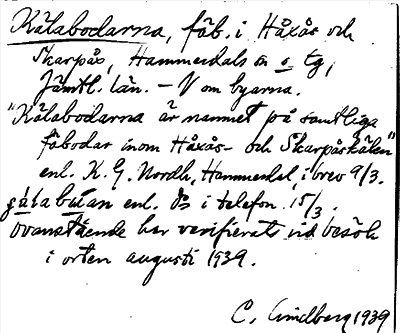 Kälabodarna, fäb. i Håxås och
Skarpås, Hammerdals sn o tg,
Jämtl. län. – V om byarna.
"Kälabodarna är namnet på samtliga
fäbodar inom Håxås- och Skarpåskälen"
enl. K. G. Nordh, Hammerdal, i brev 9/3.
enl. i telefon 15/3.
Ovanstående har verifierats vid besök
i orten augusti 1939.
C. Lindberg 1939